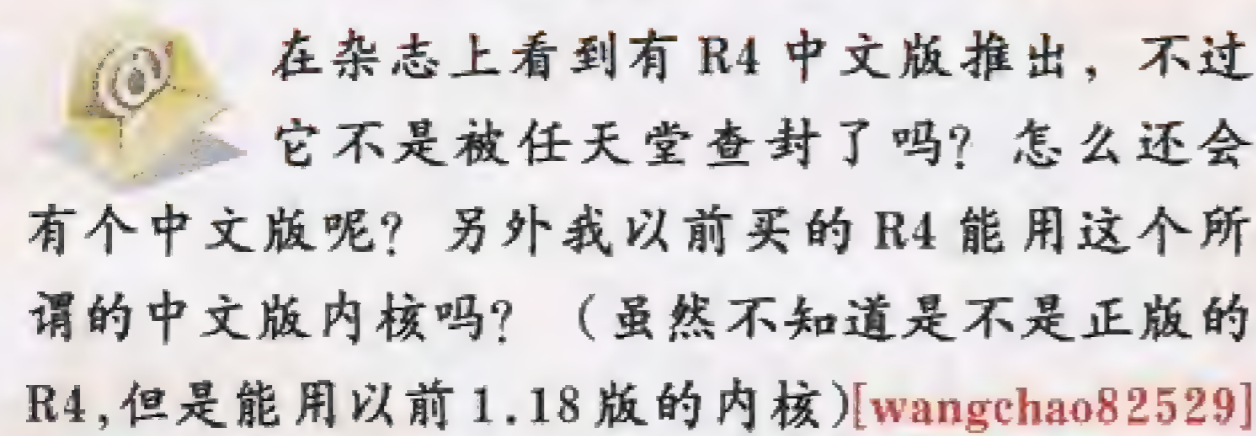 在杂志上看到有 R4 中文版推出，不过
它不是被任天堂查封了吗？怎么还会
有个中文版呢？另外我以前买的 R4 能用这个所
谓的中文版内核吗？（虽然不知道是不是正版的
R4,但是能用以前 1.18 版的内核)[wangchao82529]